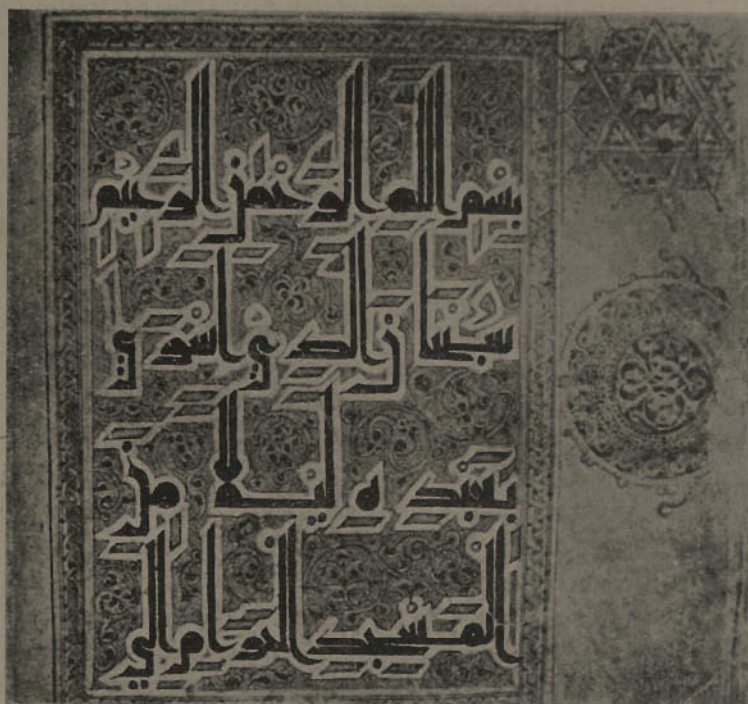 بسم الله الرحمن الرحيم
سبحان الذي اسرى
بعبده ليلا من
المسجد الحرام الى